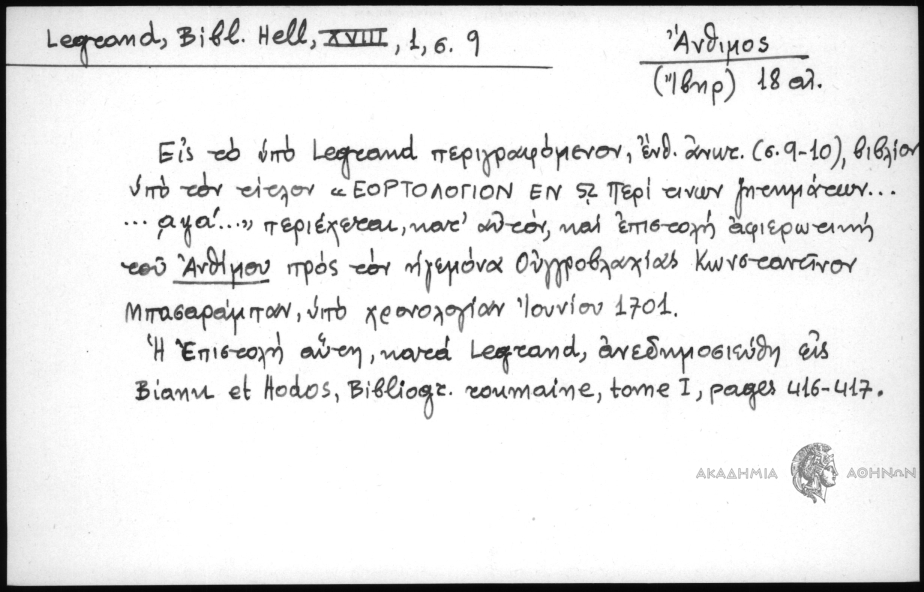 Legrand, Bibl. Hell, XVIII, 1, σ. 9
Ἄνθιμος
(Ἴβηρ) 18 αἰ.
Εἰς τὸ ὑπὸ Legrand περιγραφόμενον, ἔνθ. ἀνωτ. (σ. 9-10), βιβλίον
ὑπὸ τὸν τίτλον «ΕΟΡΤΟΛΟΓΙΟΝ ΕΝ ᾯ Περί τινων ζητημάτων...
... αψα΄...» περιέχεται, κατ' αὐτόν, καὶ ἐπιστολὴ ἀφιερωτικὴ
τοῦ Ἀνθίμου πρὸς τὸν ἡγεμόνα Οὑγγροβλαχίας Κωνσταντῖνον
Μπασαράμπαν, ὑπὸ χρονολογίαν Ἰουνίου 1701.
Ἡ Ἐπιστολὴ αὕτη, κατὰ Legrand, ἀνεδημοσιεύθη εἰς
Bianu et Hodos, Bibliogr. roumaine, tome I, pages 416-417.
ΑΚΑΔΗΜΙΑ ΑΘΗΝΩΝ